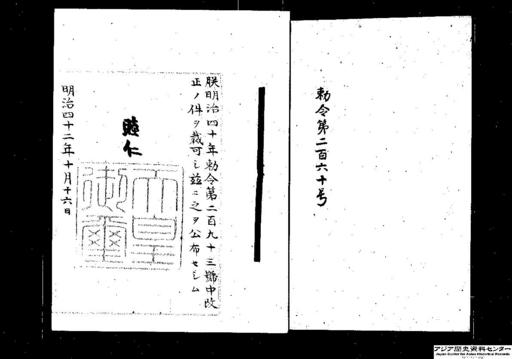 勅令第二百六十号
朕明治四十年勅令第二百九十三號中改
正ノ件ヲ裁可シ茲ニ之ヲ公布セシム
睦仁
天皇
御璽
明治四十二年十月十六日
アジア歴史資料センター
Japan Center for Asian Historical Records